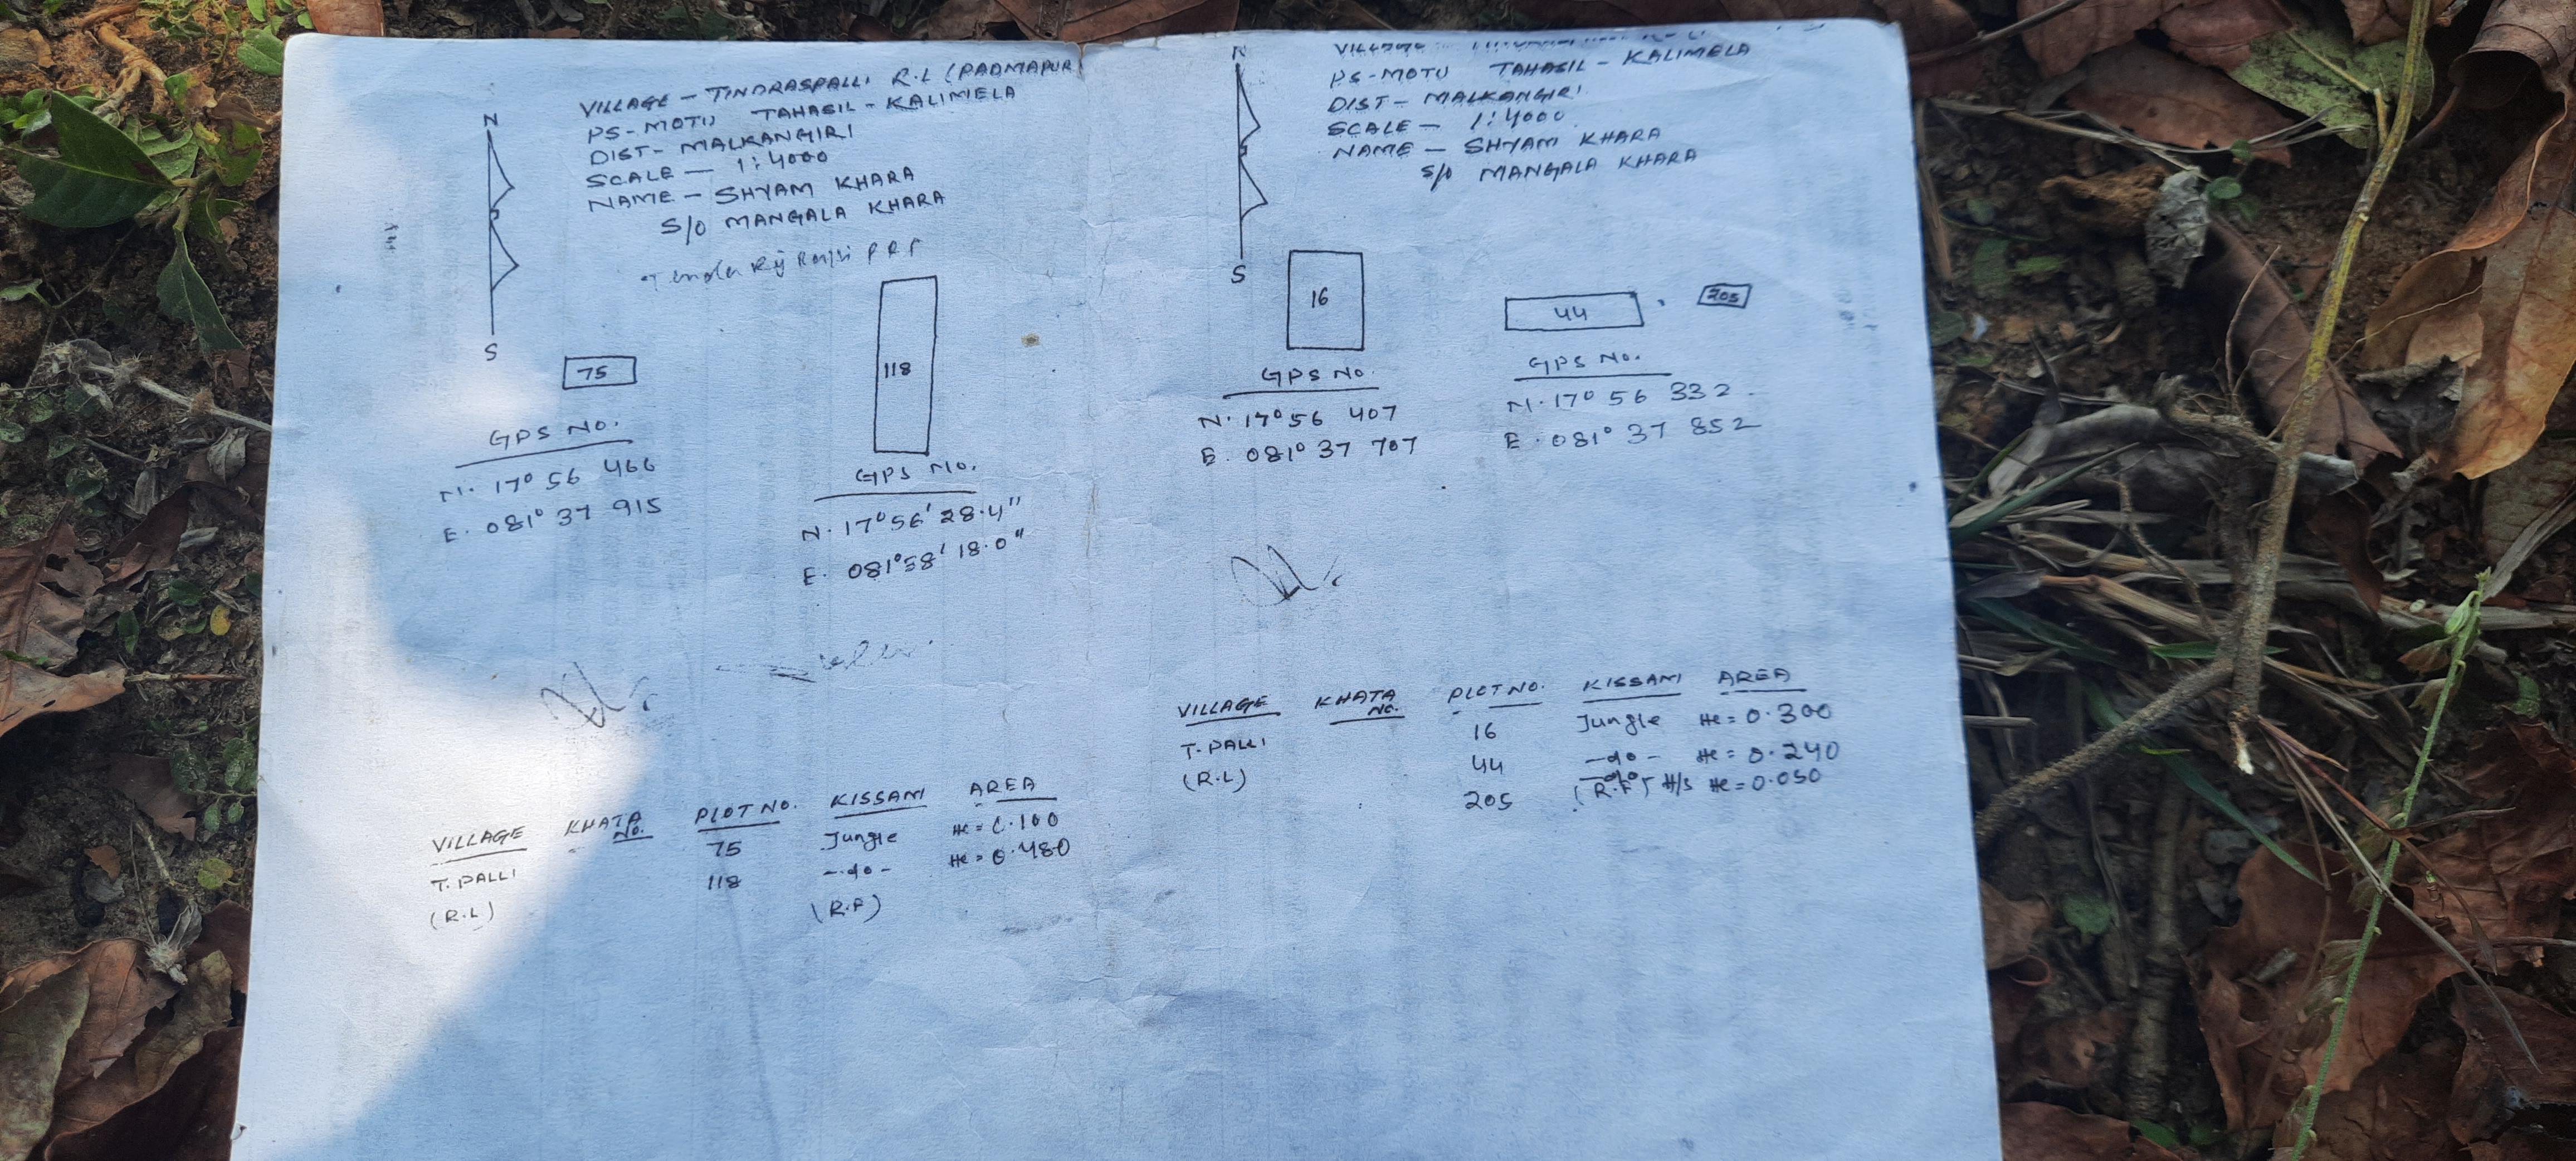 VILLAGE - TINDRASPALLI R.L (PADMAPUR)
PS - MOTU TAHASIL - KALIMELA
DIST - MALKANGIRI
SCALE - 1:4000
NAME - SHYAM KHARA
S/O MANGALA KHARA
N
S
75
118
GPS NO.
N. 17° 56 466
E. 081° 37 915
GPS NO.
N. 17° 56' 28.4"
E. 081° 38' 18.0"
VILLAGE KHATA NO. PLOT NO. KISSAM AREA
T. PALLI 75 Jungle He = 0.100
(R.L) 118 -do- He = 0.480
(R.F)
VILLAGE
PS - MOTU TAHASIL - KALIMELA
DIST - MALKANGIRI
SCALE - 1:4000
NAME - SHYAM KHARA
S/o MANGALA KHARA
N
S
16
44
205
GPS NO.
N. 17° 56 407
E. 081° 37 707
GPS NO.
N. 17° 56 332
E. 081° 37 852
VILLAGE KHATA NO. PLOT NO. KISSAM AREA
T. PALLI 16 Jungle He = 0.300
(R.L) 44 -do- He = 0.240
205 -do- (R.F) H/S He = 0.050